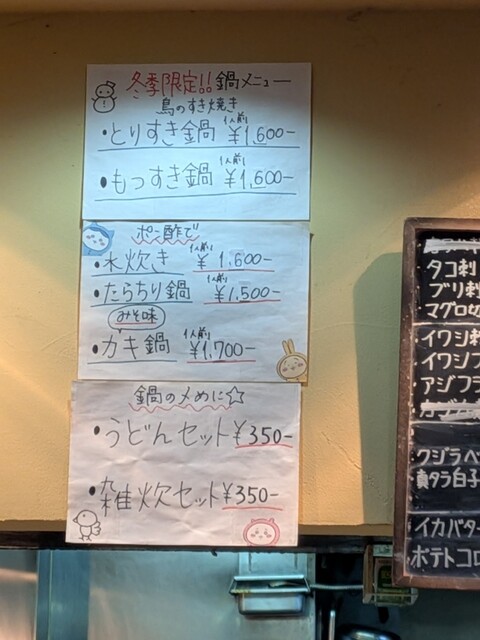 冬季限定!! 鍋メニュー
鳥のすき焼き
・とりすき鍋 1人前 ¥1,600-
・もつすき鍋 1人前 ¥1,600-
ポン酢で
・水炊き 1人前 ¥1,600-
・たらちり鍋 1人前 ¥1,500-
みそ味
・カキ鍋 1人前 ¥1,700-
鍋の〆めに☆
・うどんセット¥350-
・雑炊セット¥350-
タコ刺
ブリ刺
マグロ
・イワシ刺
・イワシフ
・アジフラ
・クジラベ
・真タラ白子
・イカバター
・ポテトコロ